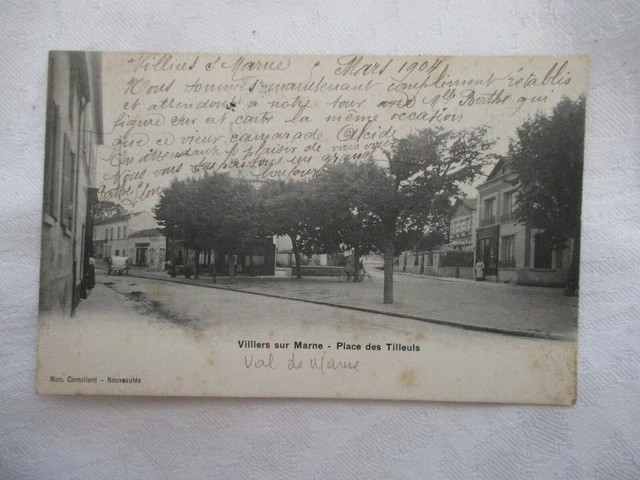 Villiers s/ Marne Mars 1904
Nous sommes maintenant complement rétablis
et attendons à notre tour avec Mlle Berthe qui
figure sur cet carte la même occasion
que ce vieux camarade Alcide
En attendant le plaisir de vous voir
Nous vous souhaitons un grand
bonjour
Villiers sur Marne - Place des Tilleuls
Val de Marne
Mon. Cornillard - Nouveautés